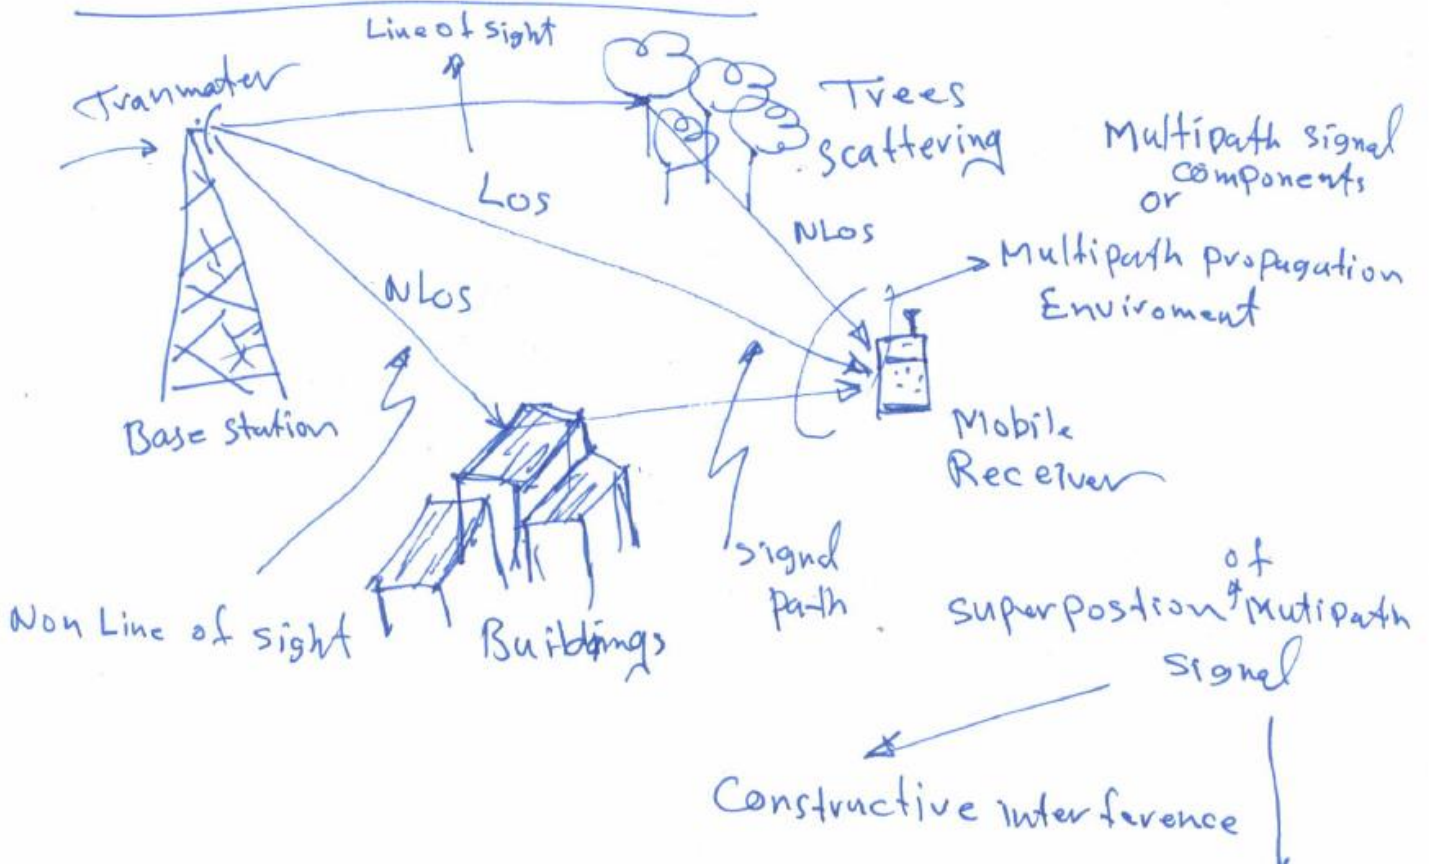 Line of sight
Tranmater
Trees
scattering
Multipath signal
components
or
Multipath propagation
Enviroment
LOS
NLOS
NLOS
Base station
Mobile
Receiver
Non Line of sight
Buildings
signal
path
of
superpostion Mutipath
signal
Constructive interference